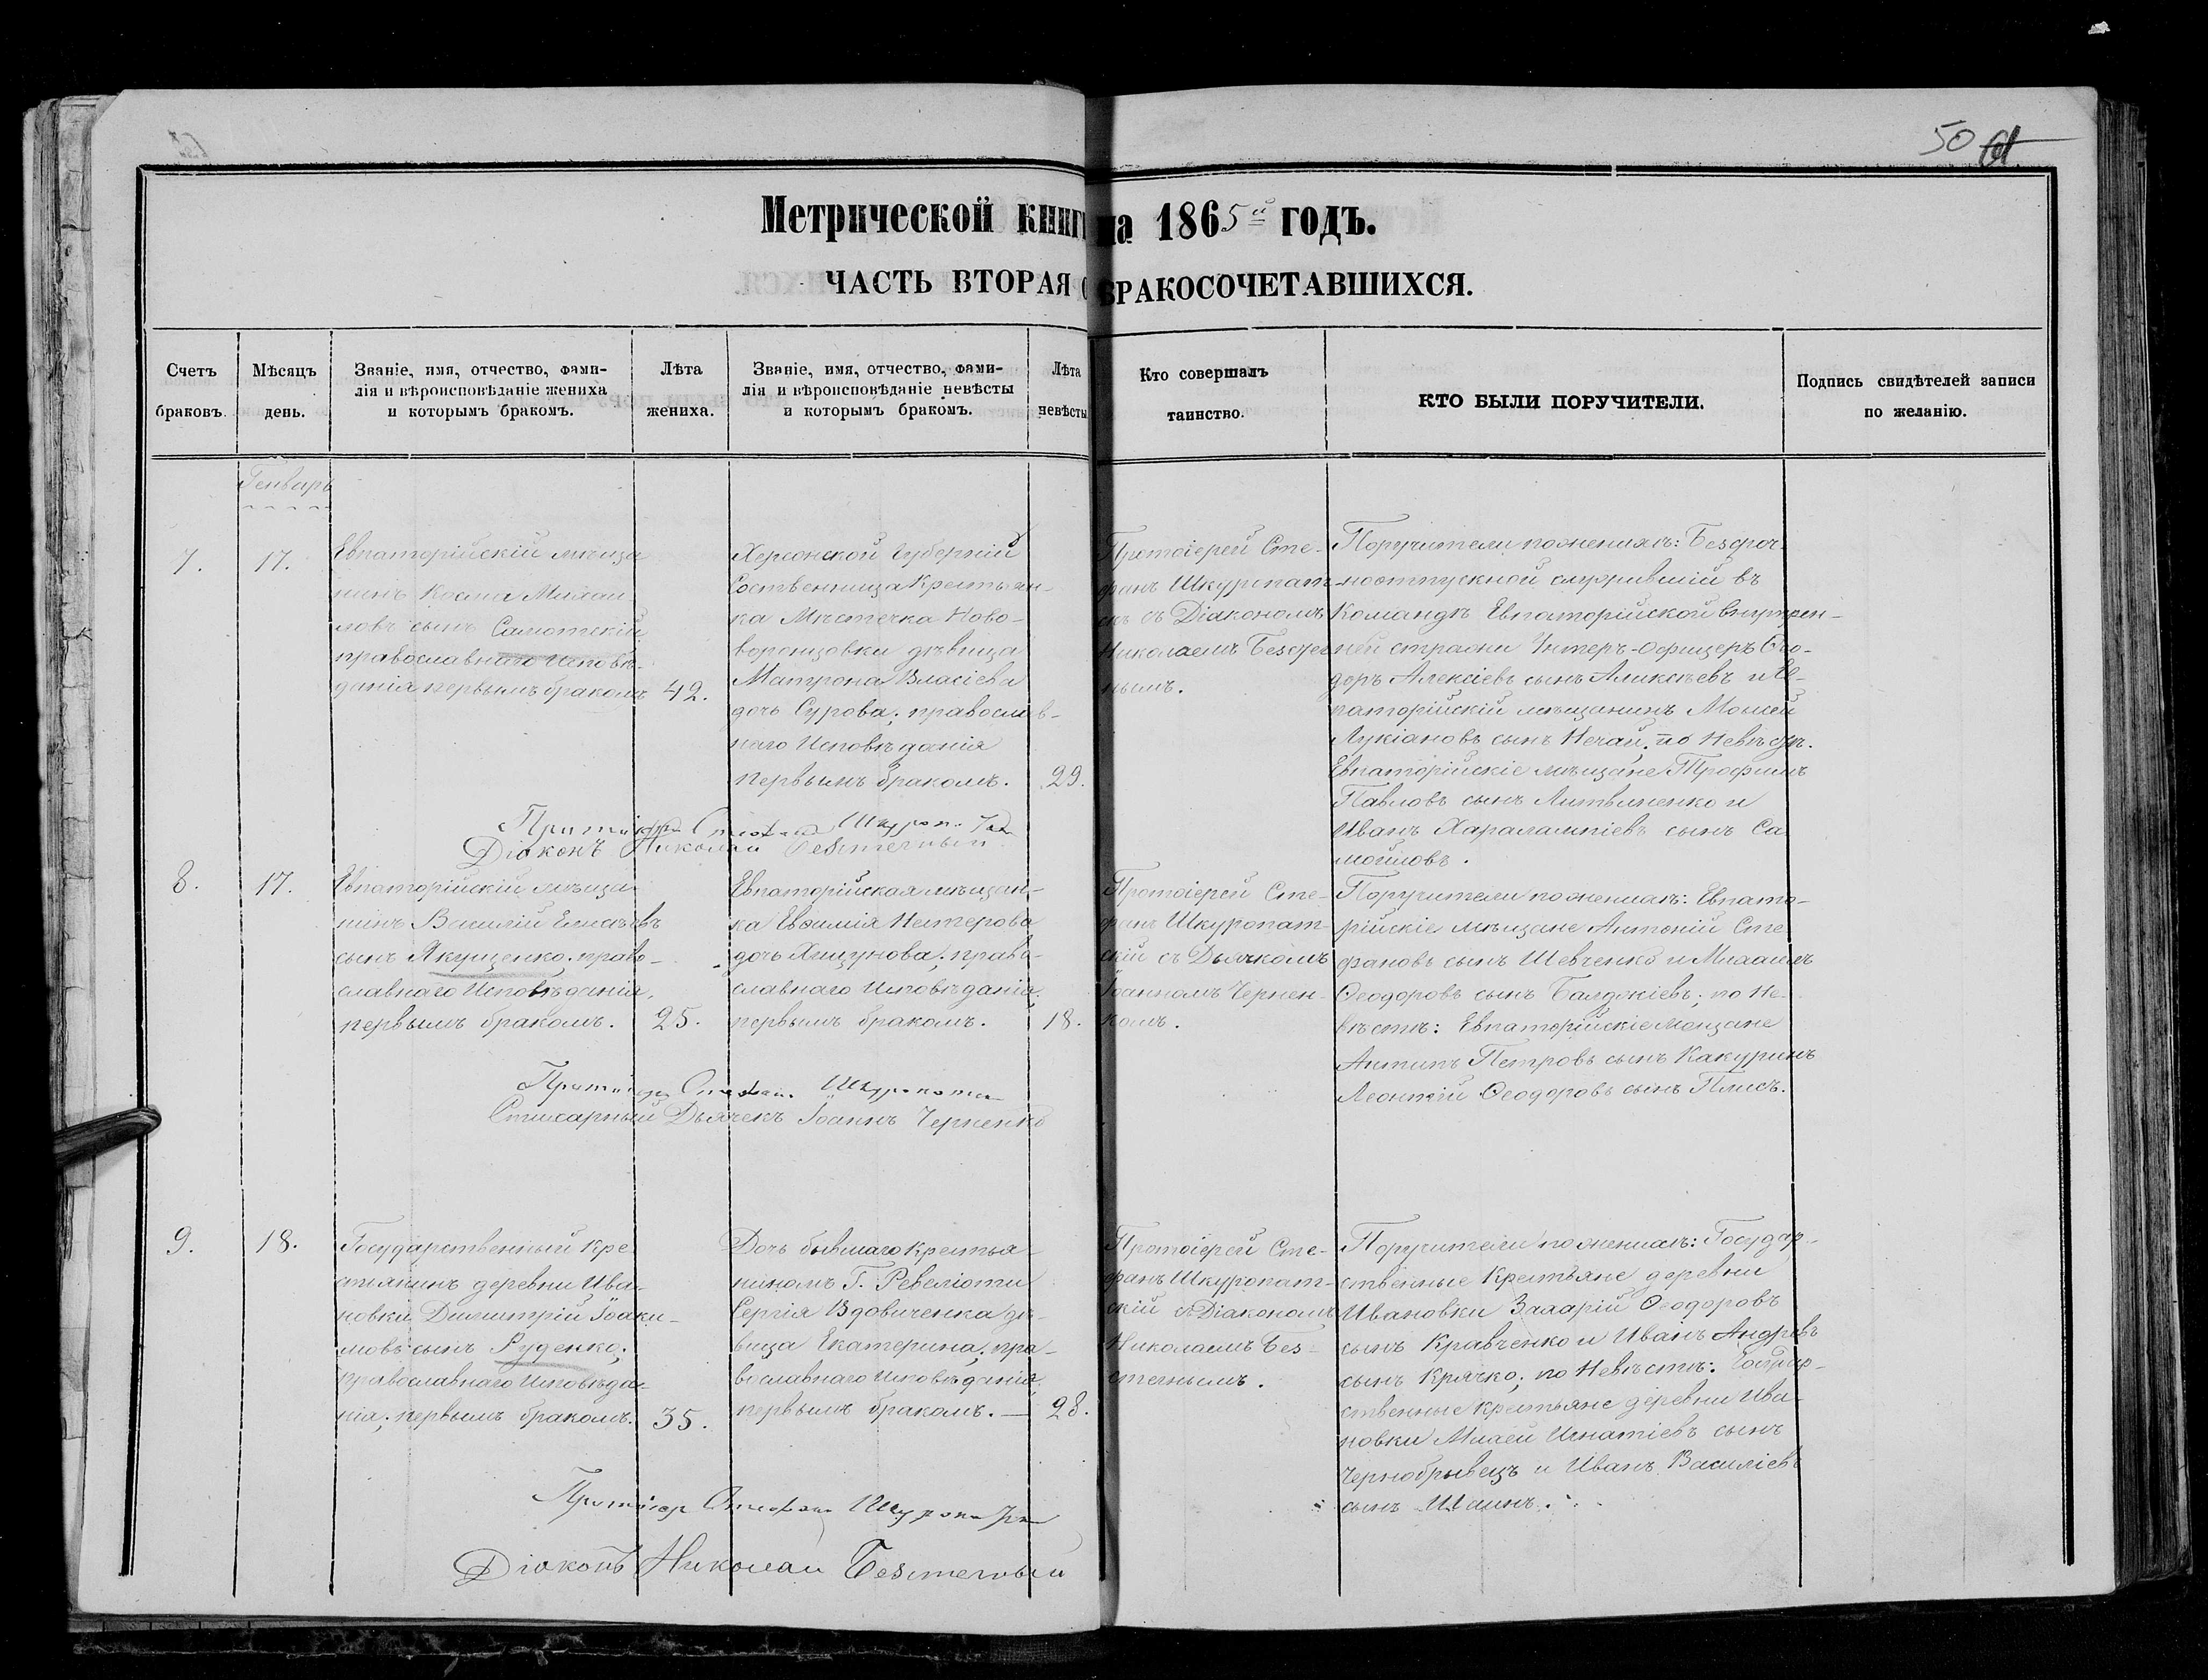 50
Метрической книги на 1865й годъ.
ЧАСТЬ ВТОРАЯ О БРАКОСОЧЕТАВШИХСЯ.
Счетъ браковъ.
Мѣсяцъ день.
Званіе, имя, отчество, фами-
лія и вѣроисповѣданіе жениха
и которымъ бракомъ.
Лѣта жениха.
Званіе, имя, отчество, фами-
лія и вѣроисповѣданіе невѣсты
и которымъ бракомъ.
Лѣта невѣсты
Кто совершалъ
таинство.
КТО БЫЛИ ПОРУЧИТЕЛИ.
Подпись свидѣтелей записи
по желанію.
Генварь
7.
17.
Евпаторійскій мѣща
нинъ Косма Михаи
ловъ сынъ Самотскій
православнаго Исповѣ-
данія первымъ бракомъ
42.
Херсонской Губерніи
Соственница Крестьян-
ка Мѣстечка Ново-
воронцовки дѣвица
Матрона Власіева
дочь Сурова; православ-
наго Исповѣданія
первымъ бракомъ.
29.
Протоіерей Сте-
фанъ Шкуропат-
скъ съ Діакономъ
Николаемъ Безсчет
нымъ.
Поручители по женихѣ: Безсроч-
ноотпускной служившій въ
Командѣ Евпаторійской внутрен-
ней стражи Унтеръ-Офицеръ Ѳео-
доръ Алексіевъ сынъ Аликсѣевъ и Ев-
паторійскій мѣщанинъ Моисей
Лукіановъ сынъ Нечай; по Невѣстѣ.
Евпаторійскіе мѣщане Трофимъ
Павловъ сынъ Литвиненко и
Иванъ Харалампіевъ сынъ Са
мойловъ.
Протоіерей Стефанъ Шкуропат
Діаконъ Николай Безстечный
8.
17.
Евпаторійскій мѣща-
нинъ Василій Елисѣевъ
сынъ Якущенко; право-
славнаго Исповѣданія,
первымъ бракомъ.
25.
Евпаторійская мѣщан-
ка Евѳимія Нестерова
дочь Хицунова; право-
славнаго Исповѣданія;
первымъ бракомъ.
18.
Протоіерей Сте-
фанъ Шкуропат-
скій съ Дьячкомъ
Іоанномъ Чернен-
комъ.
Поручители по женихѣ: Евпато-
рійскіе мѣщане Антоній Сте
фановъ сынъ Шевченко и Михаилъ
Ѳеодоровъ сынъ Балджіевъ; по Не-
вѣстѣ: Евпаторійскіе Мещане
Антипъ Петровъ сынъ Какуринъ
Леонтій Ѳеодоровъ сынъ Плисъ.
Протоіерей Стефанъ Шкуропат
Стихарный Дьячекъ Іоаннъ Черненко
9.
18.
Государственный Кре
стьянинъ деревни Ива-
новки Димитрій Іоаки-
мовъ сынъ Руденко;
православнаго Исповѣда-
нія; первымъ бракомъ.
35.
Дочь бывшаго крестья-
нина Г. Ревеліоти
Сергія Вдовиченка дѣ-
вица Екатерина; пра-
вославнаго Исповѣданія;
первымъ бракомъ. —
28.
Протоіерей Сте-
фанъ Шкуропат-
скій съ Діакономъ
Николаемъ Без-
стечнымъ.
Поручители по женихѣ: Государ-
ственные Крестьяне деревни
Ивановки Захарій Ѳеодоровъ
сынъ Кравченко и Иванъ Андреевъ
сынъ Крячко; по Невѣстѣ: Государ-
ственные крестьяне деревни Ива-
новки Михей Игнатіевъ сынъ
Чернобрывецъ и Иванъ Василіевъ
сынъ Шаинъ.
Протоіерей Стефанъ Шкуропат
Діаконъ Николай Безстечный